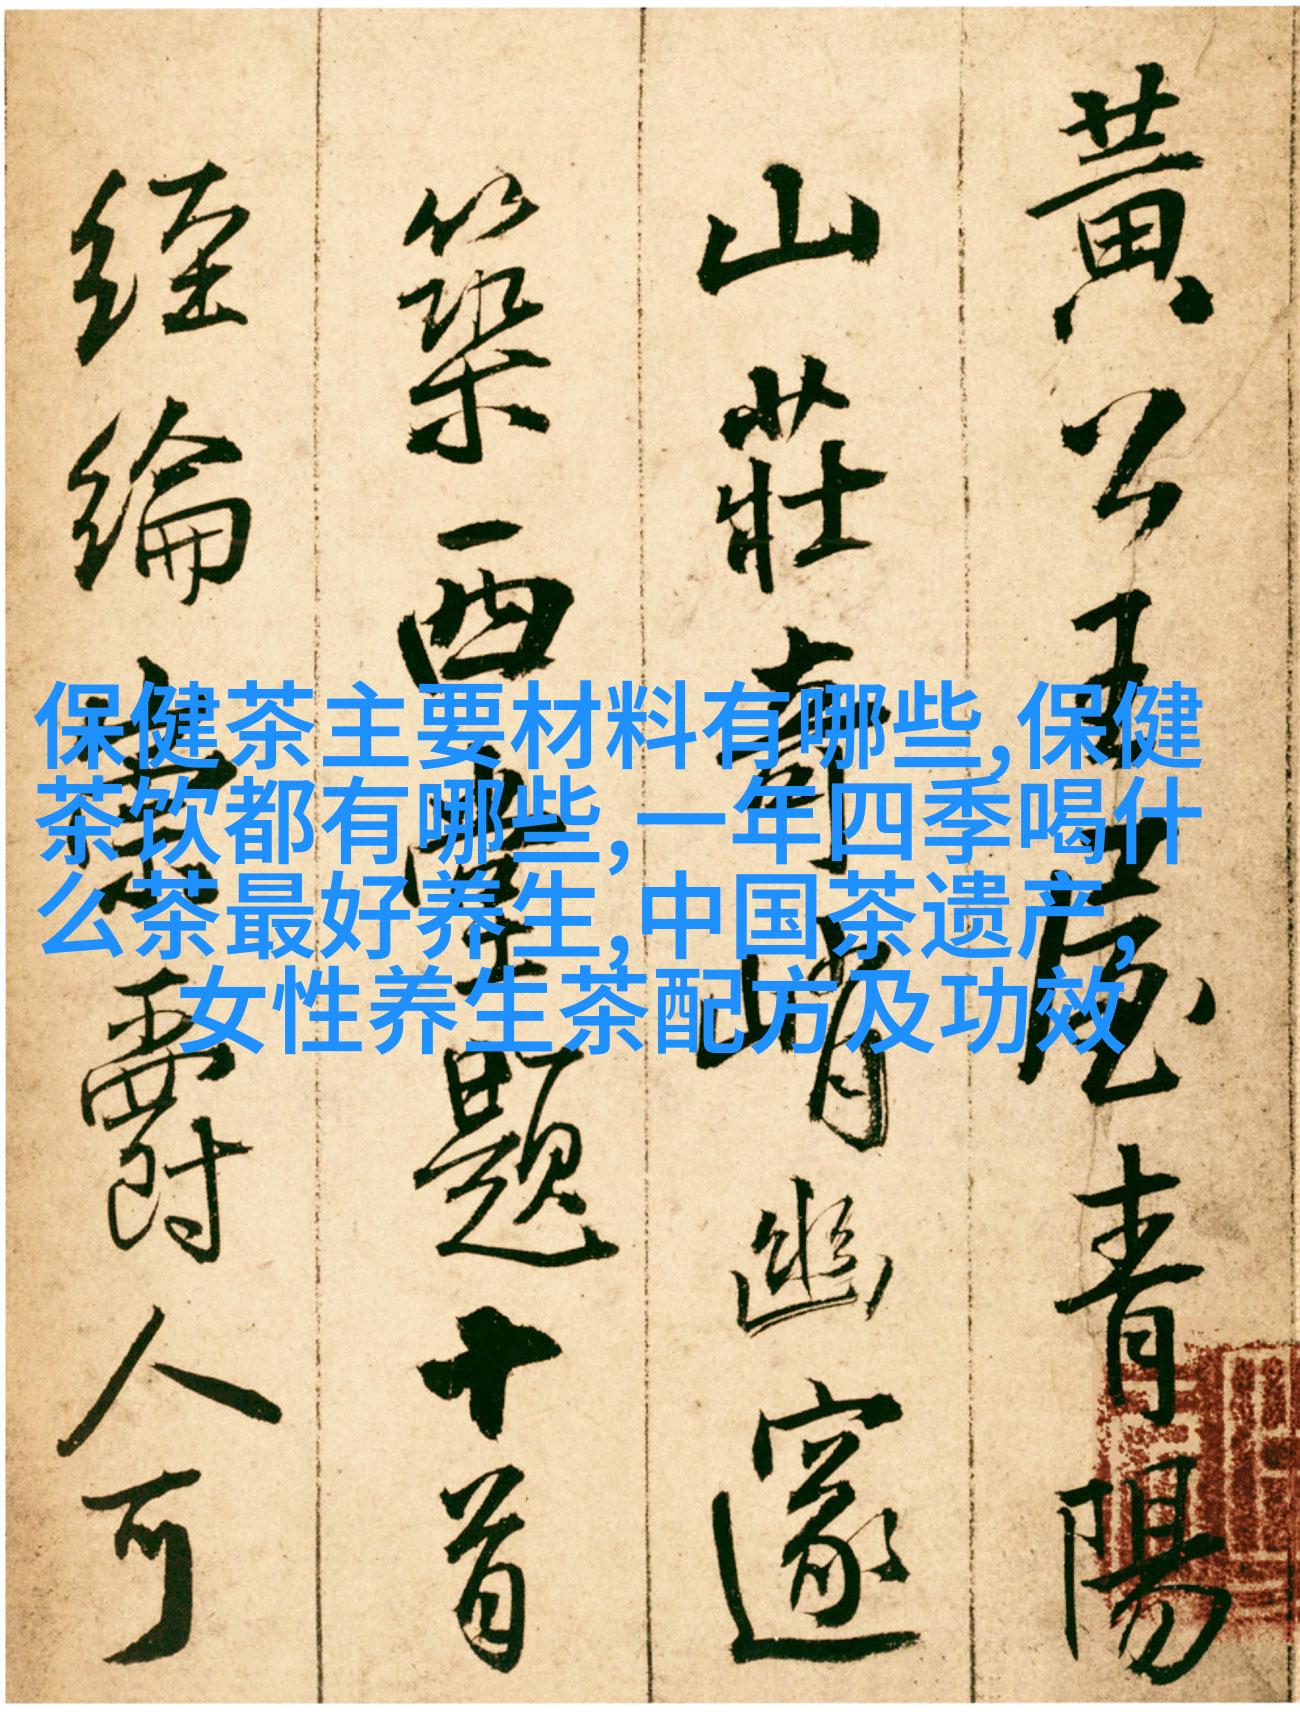 保健茶主要材料有哪些,保健
茶饮都有哪些,一年四季喝什
么茶最好养生,中国茶遗产,
女性养生茶配方及功效
黃公王屋青陽
山莊奇峭幽邃
築西堂題十首
經綸寄爵人可